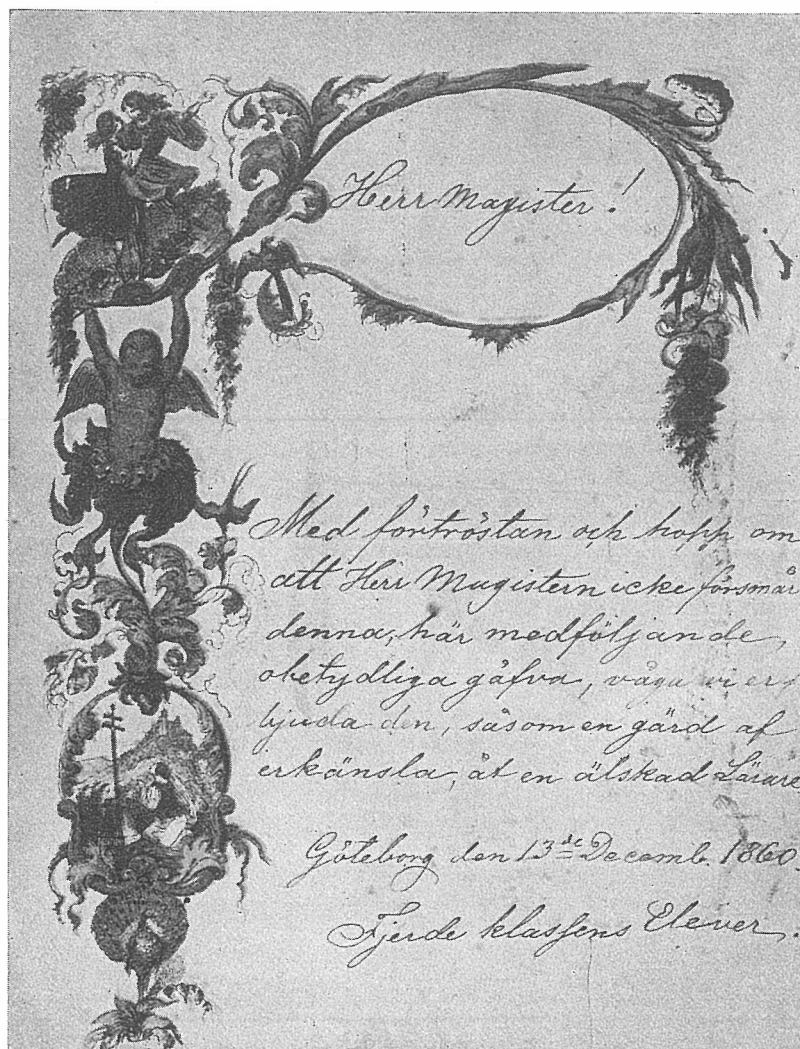 Herr Magister!
Med förtröstan och hopp om
att Herr Magistern icke försmår
denna, här medföljande,
obetydliga gåfva, våga vi er-
bjuda den, såsom en gärd af
erkänsla, åt en älskad Lärare
Göteborg den 13de Decemb. 1860.
Fjerde klassens Elever.